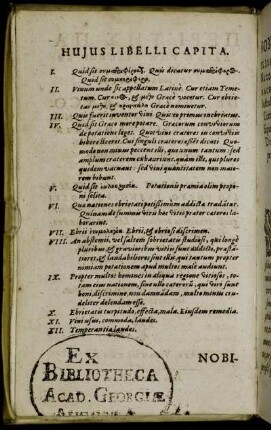 HUJUS LIBELLI CAPITA.
I. Quid sit Quis dicatur
Quid sit
II. Vinum unde sic appellatum Latinè. Cur etiam Temetum. Cur & Græcè vocetur. Cur ebrietas & Græcè nominetur.
III. Quis fuerit inventor vini. Quis ex primus inebrietur.
IV. Quid sit Græcè merepotare. Græcorum in conviviis
de potationis leges. Quot vini crateres in convivio
bibere liceret. Cur singulis crateres essêt dicati. Quomodo
non minus peccent illi, qui unum tantum sed
amplum craterem exhauriunt, quàm illi, qui plures
quidem vacuant: sed vini quantitatem non maiorem
bibunt.
V. Quid sit Potationis præmia olim proponi
solita.
VI. Quæ nationes ebrietati potissimùm addicta tradātur.
Quinam de summis viris hoc vitio præter cæteros laborarint.
VII. Ebrii & ebriosi discrimen.
VIII. An abstemii, vel saltem sobrietatis studiosi, qui longè
pluribus, & gravioribus vitiis sunt addicti, præstātiores,
& laudabiliores sint illis, qui tantùm propter
nimiam potationem apud multos malè audiunt.
IX. Propter multos homines in aliqua regione vitiosos, totam
eius nationem, sine ullo cæterorū, qui viri sunt
boni, discrimine, non damnādam, multo minùs crudeliter
delendam esse.
X. Ebrietatis turpitudo, effecta, mala. Eiusdem remedia.
XI. Vini usus, commoda, laudes.
XII. Temperantiæ laudes.
NOBI-
EX
BIBLIOTHECA
ACAD. GEORGIÆ